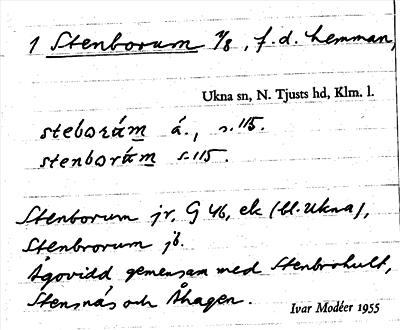 1 Stenborum 7/8, f.d. hemman,
Ukna sn, N. Tjusts hd, Klm. l.
steborám á., s. 115.
stenborám s. 115.
Stenborum jr, G 46, ek (bl. Ukna),
Stenbrorum jb.
Ägovidd gemensam med Stenbrohult,
Stensnäs och Åhagen.
Ivar Modéer 1955